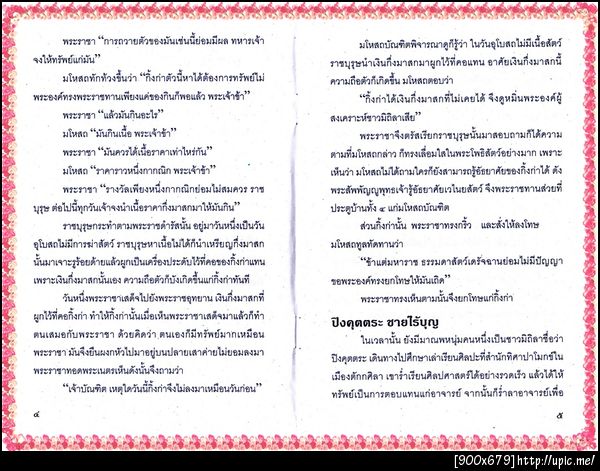 พระราชา “การถวายตัวของมันเช่นนี้ย่อมมีผล ทหารเจ้า
จงให้ทรัพย์แก่มัน”
มโหสถทักท้วงขึ้นว่า “กิ้งก่าตัวนี้หาได้ต้องการทรัพย์ไม่
พระองค์ทรงพระราชทานเพียงแค่ของกินก็พอแล้ว พระเจ้าข้า”
พระราชา “แล้วมันกินอะไร”
มโหสถ “มันกินเนื้อ พระเจ้าข้า”
พระราชา “มันควรได้เนื้อราคาเท่าไหร่กัน”
มโหสถ “ราคาราวหนึ่งกากณิก พระเจ้าข้า”
พระราชา “รางวัลเพียงหนึ่งกากณิกย่อมไม่สมควร ราช
บุรุษ ต่อไปนี้ทุกวันเจ้าจงนำเนื้อราคากึ่งมาสกมาให้มันกิน”
ราชบุรุษกระทำตามพระราชดำรัสนั้น อยู่มาวันหนึ่งเป็นวัน
อุโบสถไม่มีการฆ่าสัตว์ ราชบุรุษหาเนื้อไม่ได้ก็นำเหรียญกึ่งมาสก
นั้นมาเจาะรูร้อยด้ายแล้วผูกเป็นเครื่องประดับไว้ที่คอของกิ้งก่าแทน
เพราะเงินกึ่งมาสกนั้นเอง ความถือตัวก็บังเกิดขึ้นแก่กิ้งก่าทันที
วันหนึ่งพระราชาเสด็จไปยังพระราชอุทยาน เงินกึ่งมาสกที่
ผูกไว้ที่คอกิ้งก่า ทำให้กิ้งก่านั้นเมื่อเห็นพระราชาเสด็จมาแล้วก็ทำ
ตนเสมอกับพระราชา ด้วยคิดว่า ตนเองก็มีทรัพย์มากเหมือน
พระราชา มันจึงยืนผงกหัวไปมาอยู่บนปลายเสาค่ายไม่ยอมลงมา
พระราชาทอดพระเนตรเห็นดังนั้นจึงถามว่า
“เจ้าบัณฑิต เหตุใดวันนี้กิ้งก่าจึงไม่ลงมาเหมือนวันก่อน”
๔
มโหสถบัณฑิตพิจารณาดูก็รู้ว่า ในวันอุโบสถไม่มีเนื้อสัตว์
ราชบุรุษนำเงินกึ่งมาสกมาผูกไว้ที่คอแทน อาศัยเงินกึ่งมาสกนี้
ความถือตัวก็เกิดขึ้น มโหสถตอบว่า
“กิ้งก่าได้เงินกึ่งมาสกที่ไม่เคยได้ จึงดูหมิ่นพระองค์ผู้
สงเคราะห์ชาวมิถิลาเสีย”
พระราชาจึงตรัสเรียกราชบุรุษนั้นมาสอบถามก็ได้ความ
ตามที่มโหสถกล่าว ก็ทรงเลื่อมใสในพระโพธิสัตว์อย่างมาก เพราะ
เห็นว่า มโหสถไม่ได้ถามใครก็ยังสามารถรู้อัธยาศัยของกิ้งก่าได้ ดัง
พระสัพพัญญูพุทธเจ้ารู้อัธยาศัยเวไนยสัตว์ จึงพระราชทานส่วยที่
ประตูบ้านทั้ง ๔ แก่มโหสถบัณฑิต
ส่วนกิ้งก่านั้น พระราชาทรงกริ้ว และสั่งให้ลงโทษ
มโหสถทูลทัดทานว่า
“ข้าแต่มหาราช ธรรมดาสัตว์เดรัจฉานย่อมไม่มีปัญญา
ขอพระองค์ทรงยกโทษให้มันเถิด”
พระราชาทรงเห็นตามนั้นจึงยกโทษแก่กิ้งก่า
ปิงคุตตระ ชายไร้บุญ
ในเวลานั้น ยังมีมาณพหนุ่มคนหนึ่งเป็นชาวมิถิลาชื่อว่า
ปิงคุตตระ เดินทางไปศึกษาเล่าเรียนศิลปที่สำนักทิศาปาโมกข์ใน
เมืองตักกศิลา เขาร่ำเรียนศิลปศาสตร์ได้อย่างรวดเร็ว แล้วได้ให้
ทรัพย์เป็นการตอบแทนแก่อาจารย์ จากนั้นก็ร่ำลาอาจารย์เพื่อ
๕
[900x679]http://upic.me/